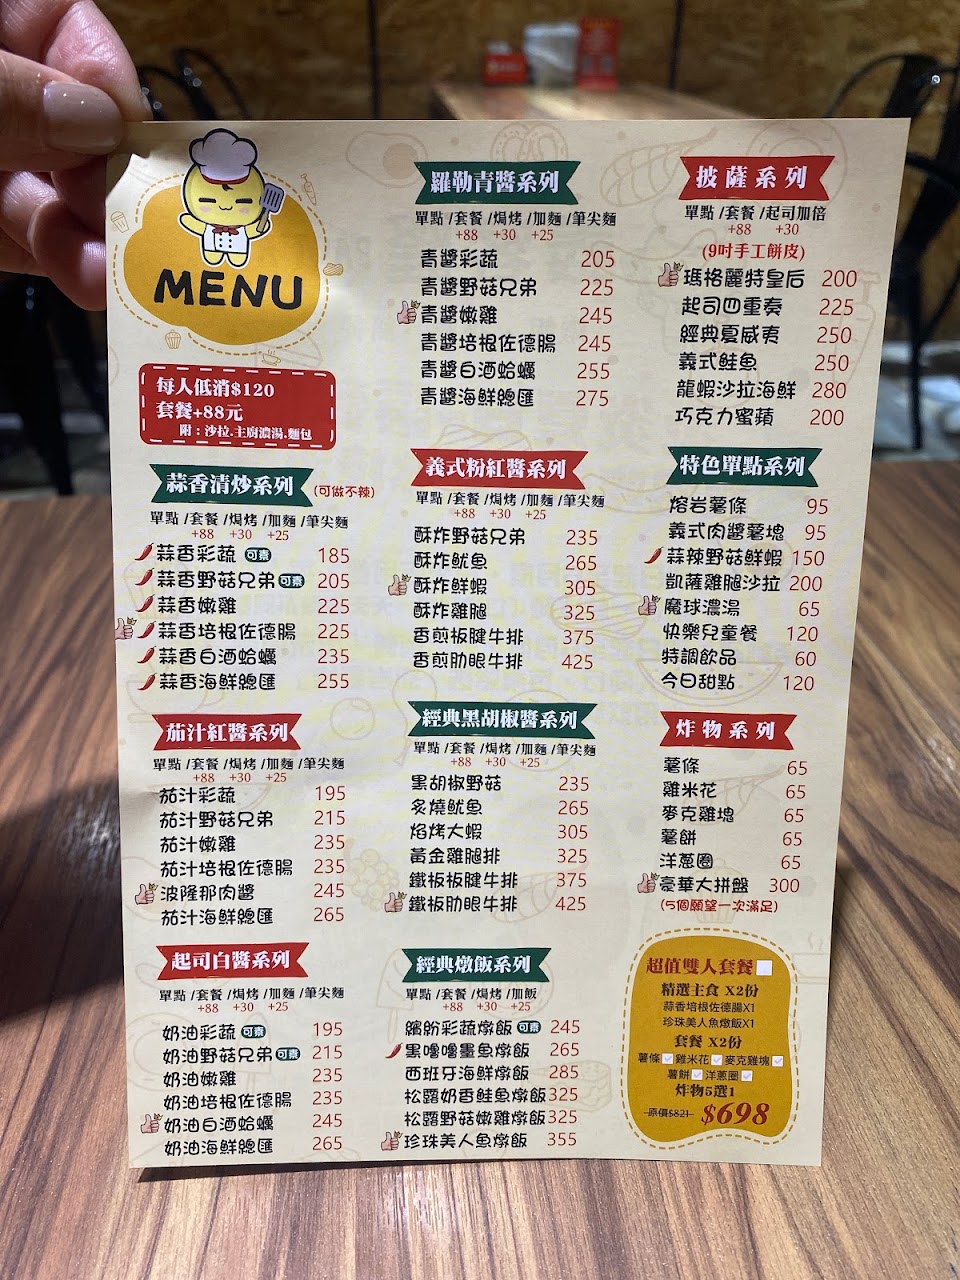 MENU
每人低消$120
套餐+88元
附：沙拉.主廚濃湯.麵包
蒜香清炒系列 (可做不辣)
單點 /套餐 /焗烤 /加麵 /筆尖麵
+88 +30 +25
蒜香彩蔬 可素 185
蒜香野菇兄弟 可素 205
蒜香嫩雞 225
蒜香培根佐德腸 225
蒜香白酒蛤蠣 235
蒜香海鮮總匯 255
茄汁紅醬系列
單點 /套餐 /焗烤 /加麵 /筆尖麵
+88 +30 +25
茄汁彩蔬 195
茄汁野菇兄弟 215
茄汁嫩雞 235
茄汁培根佐德腸 235
波隆那肉醬 245
茄汁海鮮總匯 265
起司白醬系列
單點 /套餐 /焗烤 /加麵 /筆尖麵
+88 +30 +25
奶油彩蔬 可素 195
奶油野菇兄弟 可素 215
奶油嫩雞 235
奶油培根佐德腸 235
奶油白酒蛤蠣 245
奶油海鮮總匯 265
羅勒青醬系列
單點 /套餐 /焗烤 /加麵 /筆尖麵
+88 +30 +25
青醬彩蔬 205
青醬野菇兄弟 225
青醬嫩雞 245
青醬培根佐德腸 245
青醬白酒蛤蠣 255
青醬海鮮總匯 275
義式粉紅醬系列
單點 /套餐 /焗烤 /加麵 /筆尖麵
+88 +30 +25
酥炸野菇兄弟 235
酥炸魷魚 265
酥炸鮮蝦 305
酥炸雞腿 325
香煎板腱牛排 375
香煎肋眼牛排 425
經典黑胡椒醬系列
單點 /套餐 /焗烤 /加麵 /筆尖麵
+88 +30 +25
黑胡椒野菇 235
炙燒魷魚 265
焰烤大蝦 305
黃金雞腿排 325
鐵板板腱牛排 375
鐵板肋眼牛排 425
經典燉飯系列
單點 /套餐 /焗烤 /加飯
+88 +30 +25
繽紛彩蔬燉飯 可素 245
黑嚕嚕墨魚燉飯 265
西班牙海鮮燉飯 285
松露奶香鮭魚燉飯 325
松露野菇嫩雞燉飯 325
珍珠美人魚燉飯 355
披薩系列
單點 /套餐 /起司加倍
+88 +30
(9吋手工餅皮)
瑪格麗特皇后 200
起司四重奏 225
經典夏威夷 250
義式鮭魚 250
龍蝦沙拉海鮮 280
巧克力蜜蘋 200
特色單點系列
熔岩薯條 95
義式肉醬薯塊 95
蒜辣野菇鮮蝦 150
凱薩雞腿沙拉 200
魔球濃湯 65
快樂兒童餐 120
特調飲品 60
今日甜點 120
炸物系列
薯條 65
雞米花 65
麥克雞塊 65
薯餅 65
洋蔥圈 65
豪華大拼盤 300
(5個願望一次滿足)
超值雙人套餐
精選主食 X2份
蒜香培根佐德腸X1
珍珠美人魚燉飯X1
套餐 X2份
薯條 雞米花 麥克雞塊
薯餅 洋蔥圈
炸物5選1
原價$821 $698